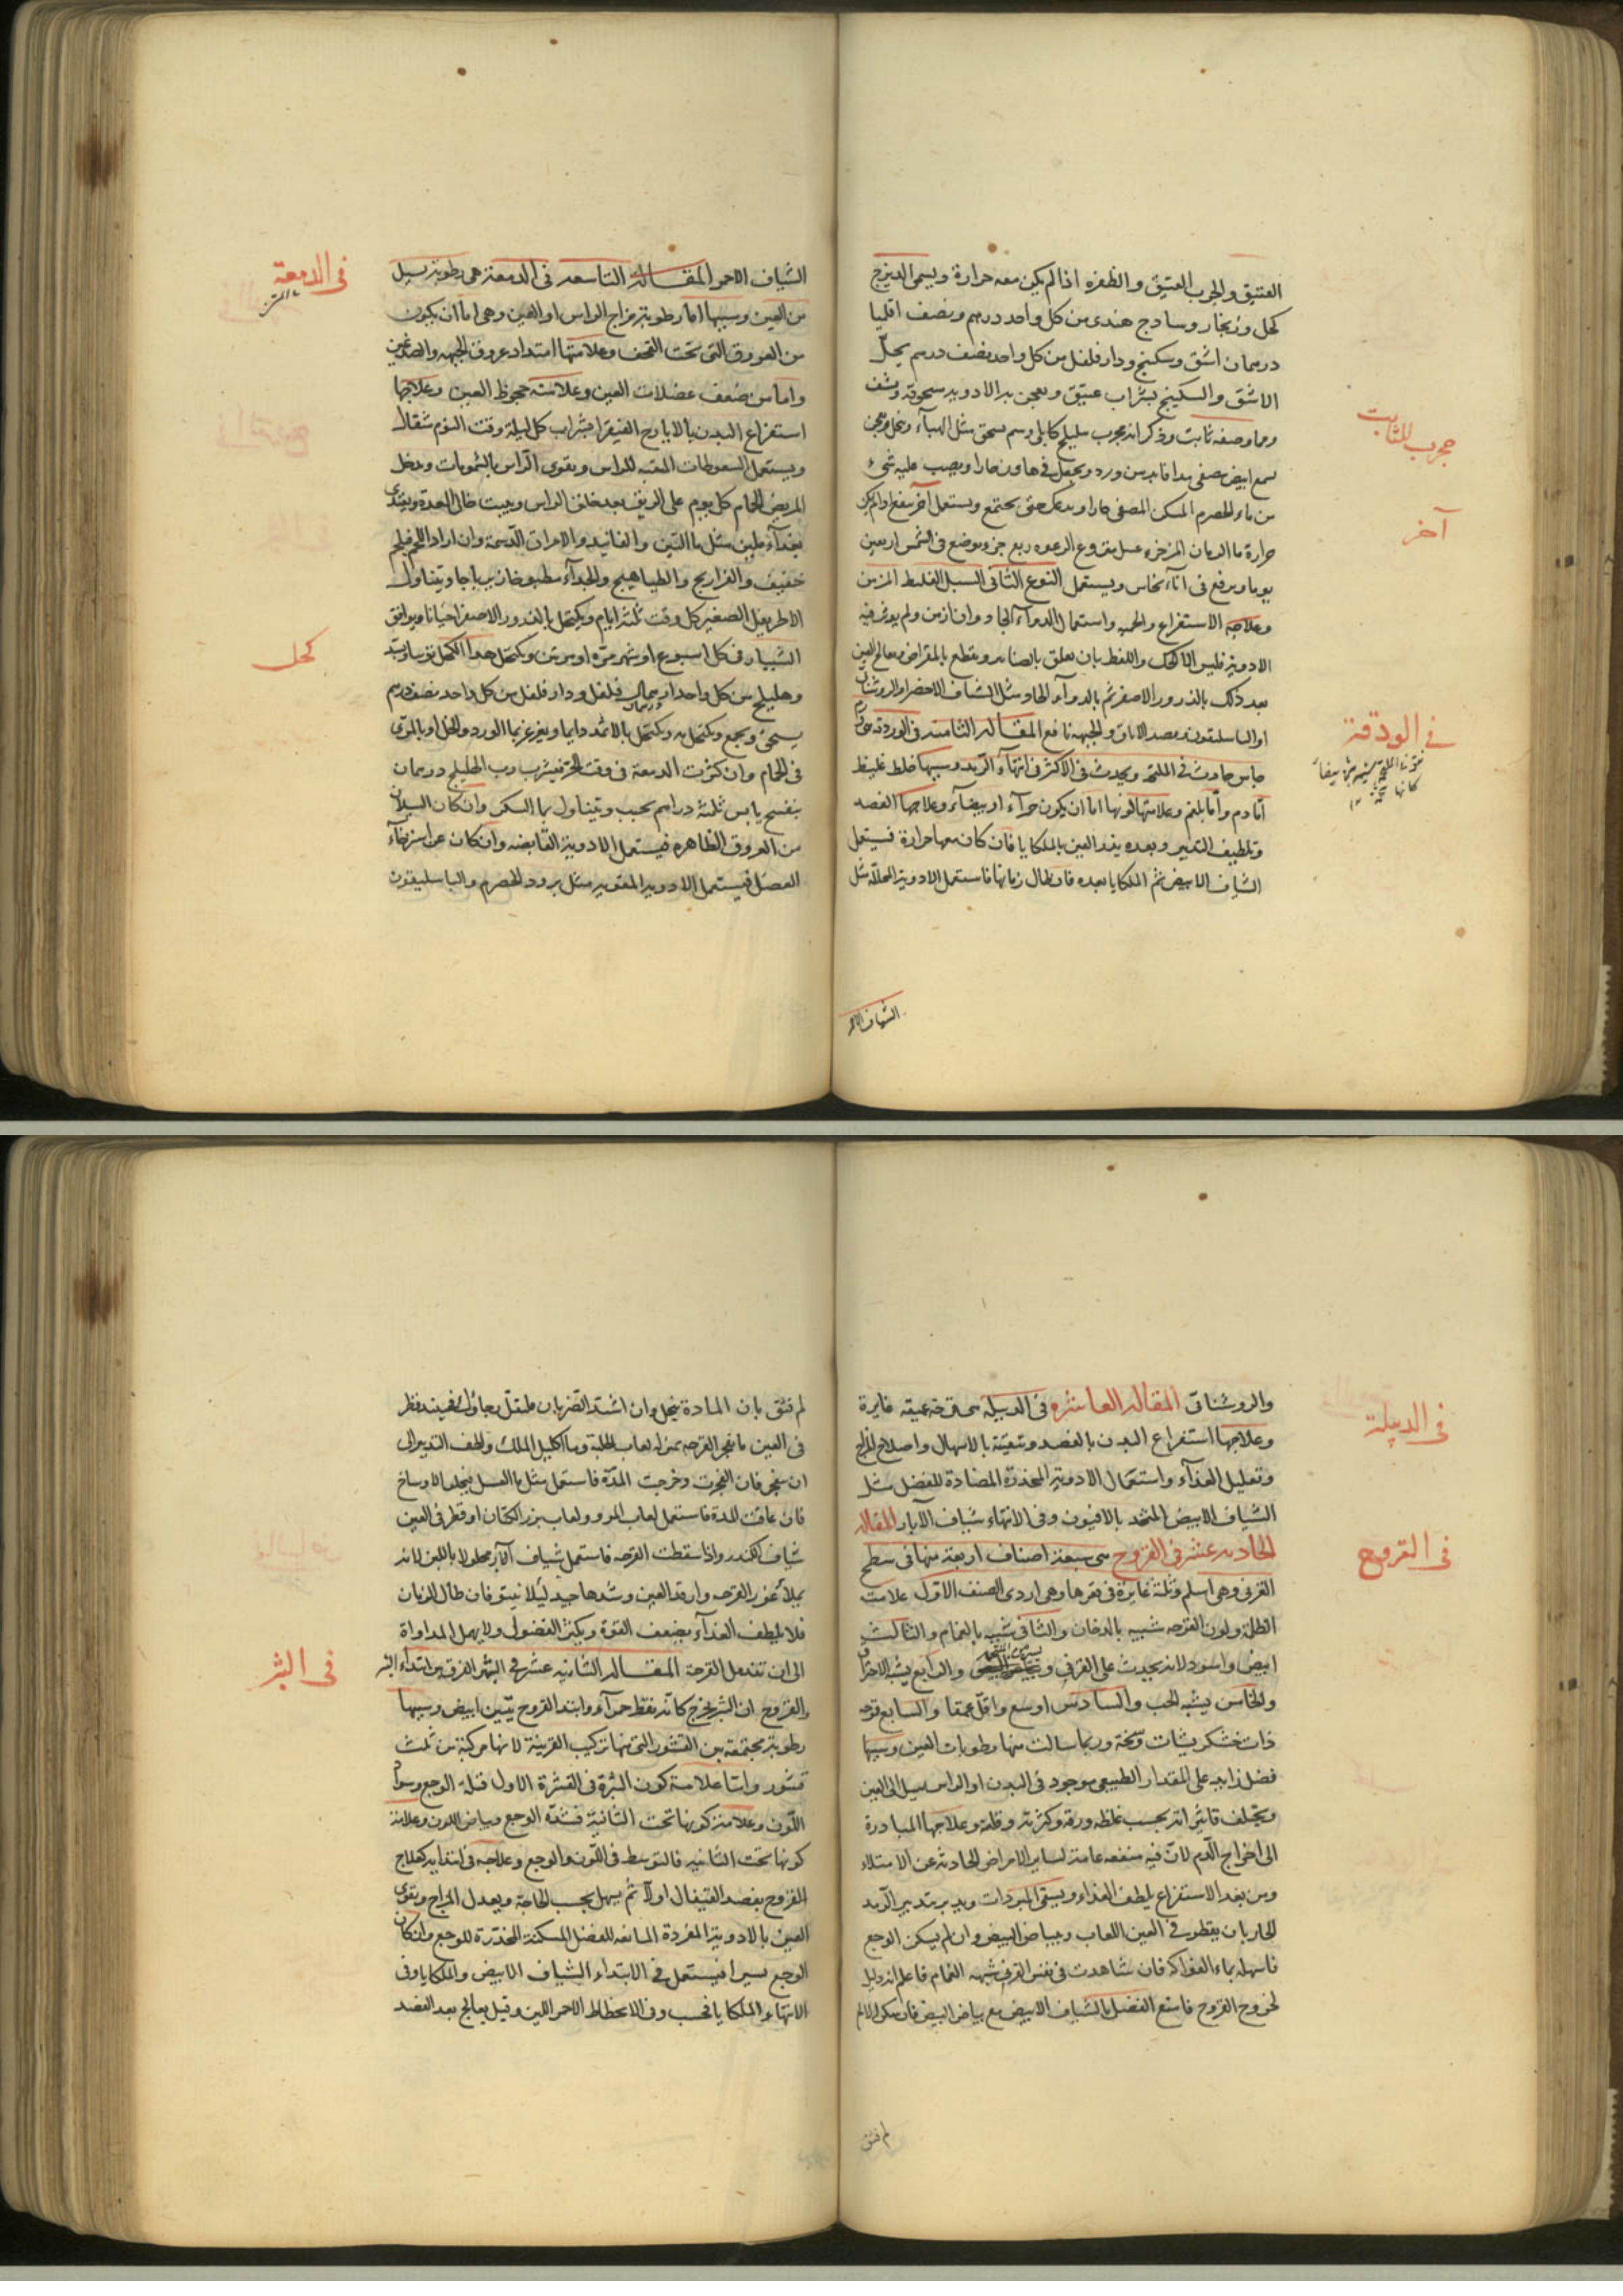 العتيق والجرب العتيق والظفره اذا لم يكن معه حرارة ويسمى الديزج
كحل وزنجار وسادج هندى من كل واحد درهم ونصف اقليميا
درهمان اشق وسكبينج ودار فلفل من كل واحد نصف درهم يحلّ
الاشق والسكبينج بشراب عتيق ويعجن به الادويه مسحوقة ويشف
ومما وصفه ثابت وذكر انه مجرب هليلج كابلى يسحق مثل الهباء
شمع ابيض مصفى من ورد ويجعل فى هاون ويصب عليه شىء
من ماء الحصرم المصفى حارا حتى يجتمع ويستعمل آخر ينفع اذا لم يكن
حرارة ماء الرمان عسل منزوع الرغوه ربع جزء يوضع فى الشمس اربعين
يوما ويرفع فى اناء نحاس ويستعمل النوع الثانى السبل الغليظ المزمن
وعلاجه الاستفراغ والحميه واستعمال الدواء الحاد وان ازمن ولم يؤثر فيه
الادوية فليس الا الحك واللقط بان يعلق بالصنانير ويقطع بالمقراض ويعالج العين
بعد ذلك بالذرور الاصفر ثم بالدواء الحاد مثل الشياف الاخضر والروشنائى
او الباسليقون وفصد الاماق والجبهة نافع المقاله الثامنه فى الوردقة هى ورم
جاس حادث فى الملتحم ويحدث فى الاكثر فى انتهاء الرمد وسببها خلط غليظ
امّا دم وامّا بلغم وعلامتها لونها اما ان يكون حمراء او بيضاء وعلاجها الفصد
وتلطيف التدبير وبعده يذر العين بالملكايا فان كان معها حرارة فيستعمل
الشياف الابيض ثم الملكايا بعده فان طال زمانها فاستعمل الادوية المحللة مثل
مجرب لثابت
آخر
فى الودقة
الشياف الاحمر
الشياف الاحمر المقاله التاسعه فى الدمعة هى رطوبة تسيل
من العين وسببها امّا رطوبة مزاج الراس او العين وهى اما ان يكون
من العروق التى تحت القحف وعلامتها امتداد عروق الجبهه والصدغين
واما من ضعف عضلات العين وعلامته جحوظ العين وعلاجها
استفراغ البدن بالايارج الفيقرا بشراب كل ليلة وقت النوم مثقال
ويستعمل السعوطات المنقيه للراس ويقوى الراس بالشمومات ويدخل
المريض الحمام كل يوم على الريق بعد حلق الراس ويبيت خالى المعدة ويغتذى
بغذاء ملين مثل ماء التين والفانيذ والامراق الدسمة وان اراد اللحم فلحم
خفيف والفراريج والطياهيج والجداء مطبوخا زيرباجا ويتناول
الاطريفل الصغير كل وقت ثلثة ايام ويكتحل بالذرور الاصفر احيانا ويوافق
الشبيار فى كل اسبوع او شهر مرّة او مرتين ويكتحل بهذا الكحل
وهليلج من كل واحد درهمان فلفل ودار فلفل من كل واحد نصف درهم
يسحق ويجمع ويكتحل به ويكتحل بالاثمد دايما ويغرغر بماء الورد والخل او بالمرّى
فى الحمام وان كثرت الدمعة فى وقت الحرّ فيشرب رب الهليلج درهمان
بنفسج يابس ثلثة دراهم يحبب ويتناول بماء السكر وان كان السيلان
من العروق الظاهره فيستعمل الادوية القابضه وان كان عن استرخاء
العضل فيستعمل الادويه المقويه مثل برود الحصرم والباسليقون
فى الدمعة
كحل
والروشناى المقاله العاشره فى الدبيله هى قرحة عميقه غايرة
وعلاجها استفراغ البدن بالفصد وتنقيته بالاسهال واصلاح المزاج
وتقليل الغذاء واستعمال الادوية المخدرة المضادة للفضل مثل
الشياف الابيض المتخذ بالافيون وفى الانتهاء شياف الآبار المقاله
الحاديه عشر فى القروح هى سبعة اصناف اربعة منها فى سطح
القرنى وهى اسلم وثلثة غايرة فى قعرها وهى اردى الصنف الاول علامته
الظلمة ولون القرحه شبيه بالدخان والثانى شبيه بالغمام والثالث
ابيض واسود لانه يحدث على القرنى والرابع يشبه الاحتراق
والخامس يشبه الحب والسادس اوسع واقلّ عمقا والسابع قرحه
ذات خشكريشات وسخة وربما سالت منها رطوبات العين وسببها
فضل زايد على المقدار الطبيعى موجود فى البدن او الراس يسيل الى العين
ويختلف تاثيراته بحسب غلظه ورقته وكثرته وقلته وعلاجها المبادرة
الى اخراج الدم لانّ فيه منفعه عامة لساير الامراض الحادثة عن الامتلاء
ومن بعد الاستفراغ يلطف الغذاء ويسقى المبردات ويدبر بتدبير الرمد
الحار بان يقطر فى العين اللعاب وبياض البيض وان لم يسكن الوجع
فاسهله بماء الفواكه فان شاهدت فى نفس القرنى شبيه الغمام فاعلم انه دليل
لخروج القروح فامنع الفضل بالشياف الابيض مع بياض البيض فان سكن الالم
فى الدبيلة
فى القروح
لم فثق
لم فثق بان المادة ينحل وان اشتد الضربان
فى العين ما يفجر القرحه بمنزله لعاب الحلبة وماء اكليل الملك ولطف التدبير الى
ان ينفجر فان انفجرت وخرجت المدّة فاستعمل مثل ماء العسل ليجلو الاوساخ
فان عاقت المدة فاستعمل لعاب المرو ولعاب بزر الكتان او قطر فى العين
شياف الكندر واذا سقطت القرحه فاستعمل شياف الآبار محلولا باللبن لانه
يملأ غور القرحه وارفد العين وشدها جيد لئلا ينتو فان طال الزمان
فلا تلطف الغذاء فيضعف القوة ويكثر الفضول ولا يهمل المداواة
الى ان تندمل القرحة المقاله الثانيه عشر فى البثر الفرق بين ابتداء البثر
والقروح ان البثر يخرج كانّه نقط حمراء وابتداء القروح يتبين ابيض وسببها
رطوبة مجتمعة بين القشور التى منها تركيب القرنية لانها مركبة من ثلث
قشور وامّا علامة كون البثرة فى القشرة الاول قلة الوجع وسواد
اللون وعلامة كونها تحت الثانية فشدّة الوجع وبياض اللون وعلامة
كونها تحت الثانيه فالتوسط فى اللون والوجع وعلاجه فى ابتدايه كعلاج
القروح بفصد القيفال اولا ثم يسهل بحسب الحاجة ويعدل المزاج ويقوى
العين بالادوية المفردة المانعه للفضل المسكنة المخدرة للوجع وان كان
الوجع يسيرا فيستعمل فى الابتداء الشياف الابيض والملكايا وفى
الانتهاء الملكايا فحسب وفى الانحطاط الاحمر اللين وقيل يعالج بعد الفصد
فى البثر